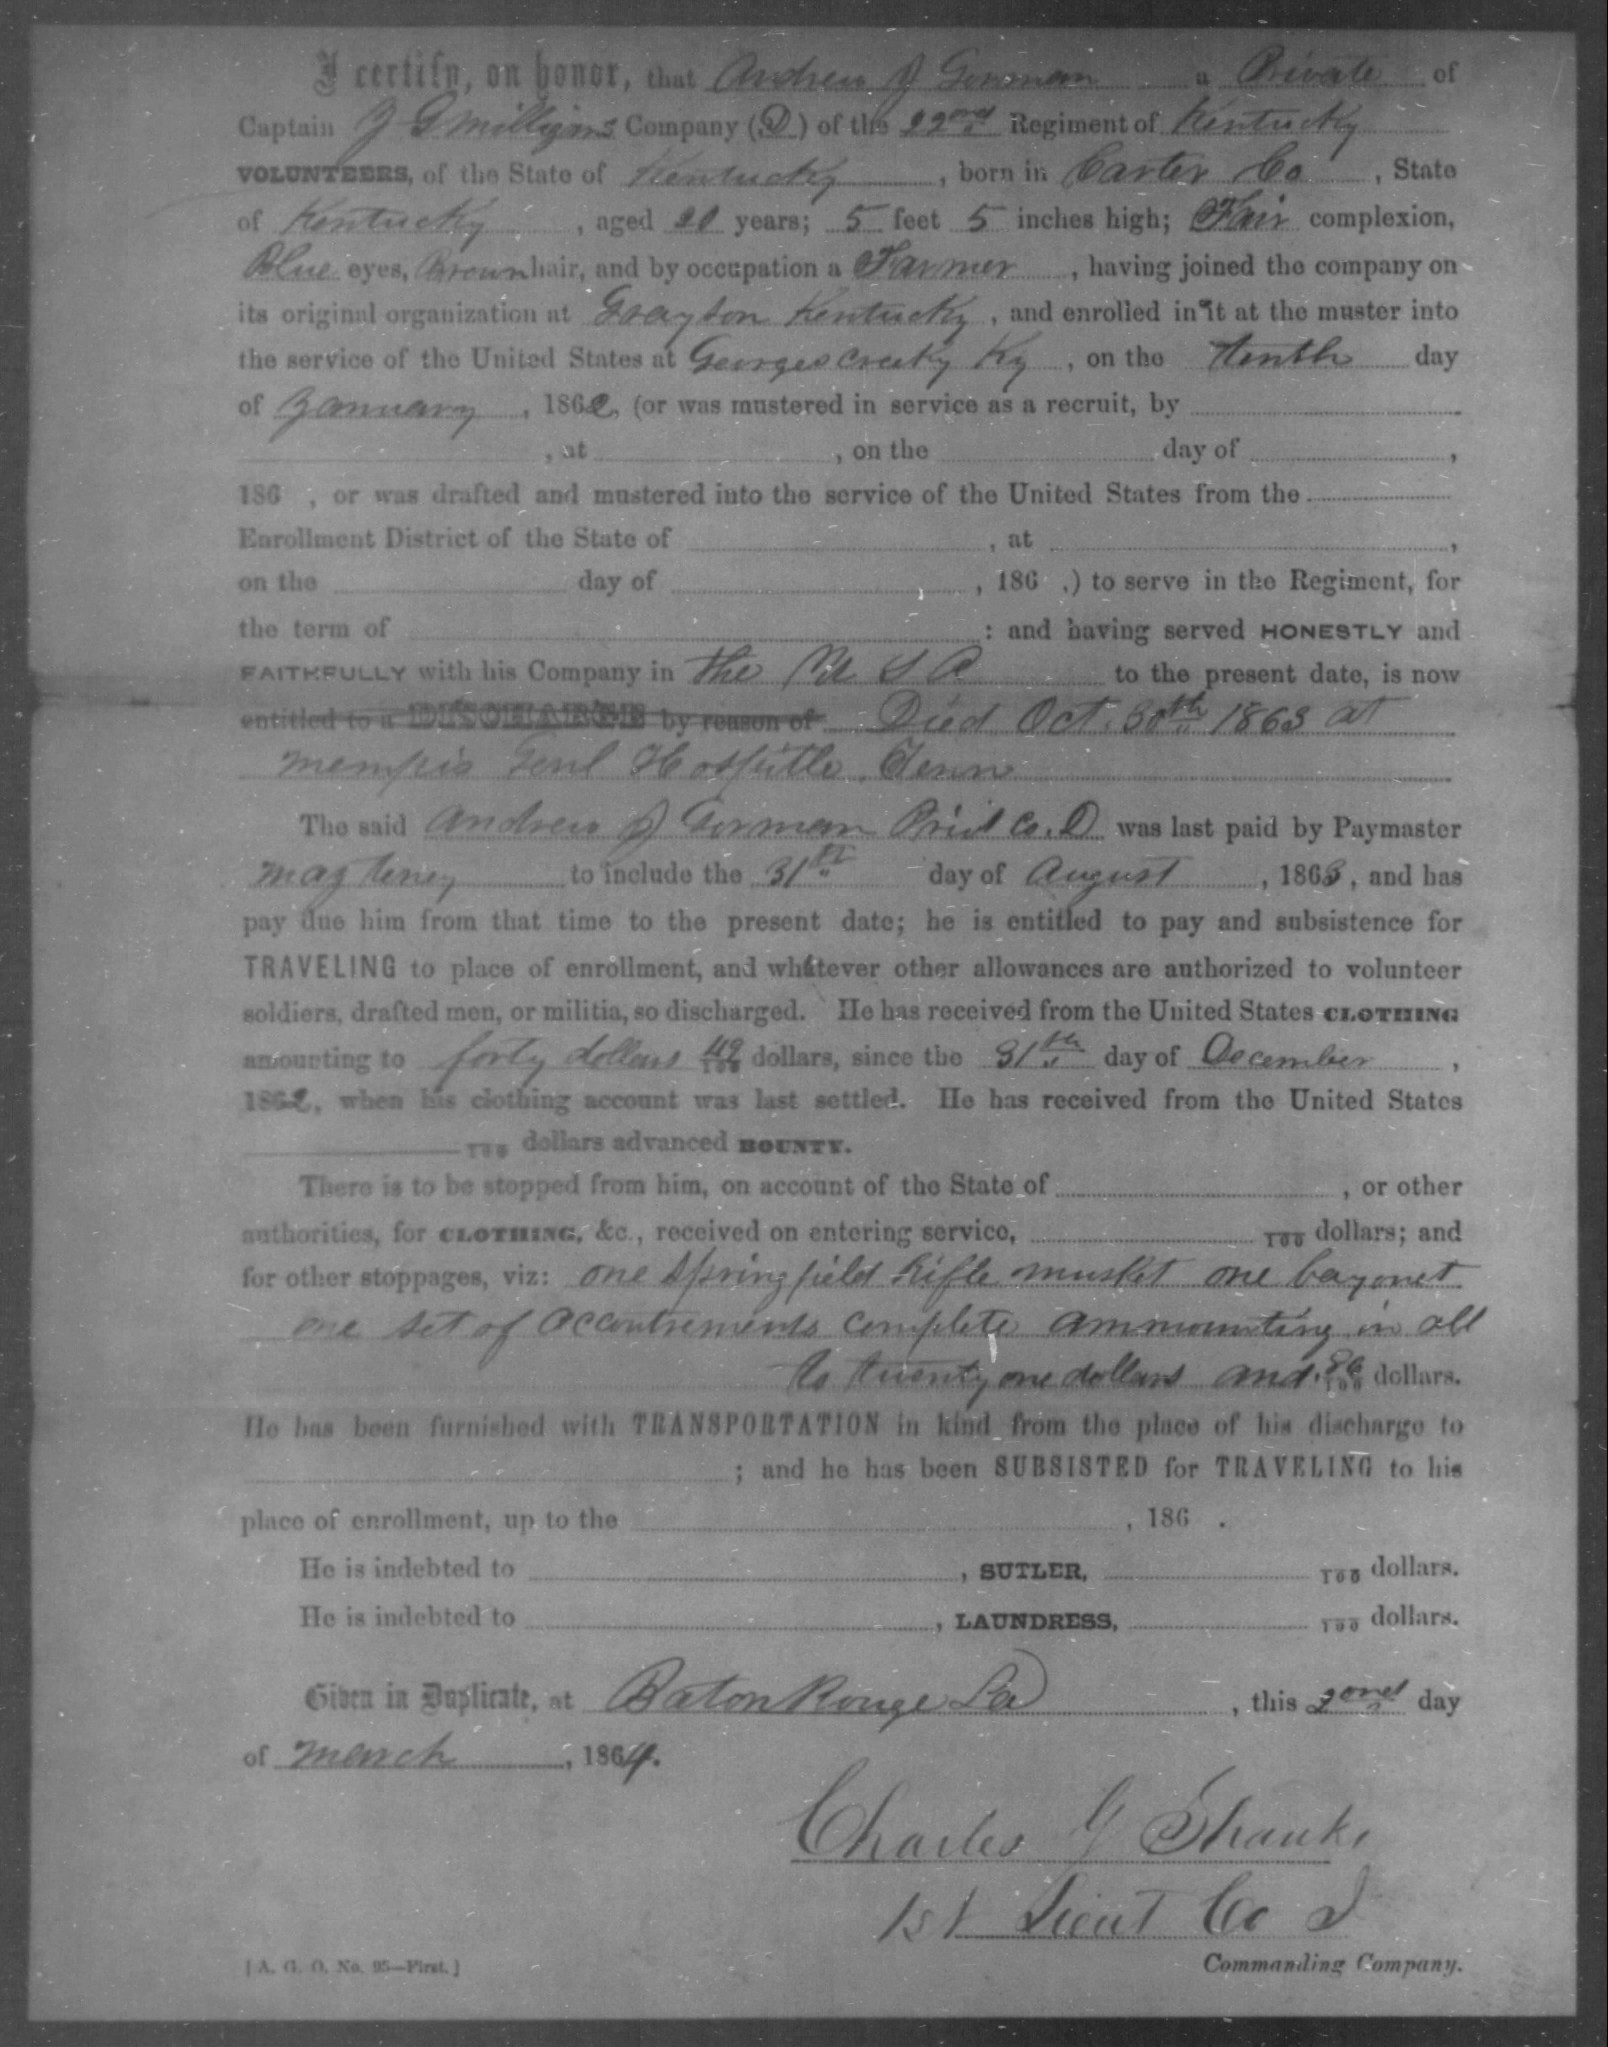 I certify, on honor, that Andrew J Gorman a Private of
Captain J G Milligans Company (D) of the 22nd Regiment of Kentucky
VOLUNTEERS, of the State of Kentucky, born in Carter Co, State
of Kentucky, aged 20 years; 5 feet 5 inches high; Fair complexion,
Blue eyes, Brown hair, and by occupation a Farmer, having joined the company on
its original organization at Grayson Kentucky, and enrolled in it at the muster into
the service of the United States at Georges creek Ky, on the tenth day
of January, 1862, (or was mustered in service as a recruit, by
, at , on the day of ,
186 , or was drafted and mustered into the service of the United States from the
Enrollment District of the State of , at ,
on the day of , 186 ,) to serve in the Regiment, for
the term of : and having served HONESTLY and
FAITHFULLY with his Company in the U S A to the present date, is now
entitled to a DISCHARGE by reason of Died Oct. 30th 1863 at
Mempis Hospittle, Tenn
The said Andrew J Gorman Co. D was last paid by Paymaster
to include the 31st day of August, 1863, and has
pay due him from that time to the present date; he is entitled to pay and subsistence for
TRAVELING to place of enrollment, and whatever other allowances are authorized to volunteer
soldiers, drafted men, or militia, so discharged. He has received from the United States CLOTHING
amounting to forty dollars 49/100 dollars, since the 31th day of December,
1862, when his clothing account was last settled. He has received from the United States
100 dollars advanced BOUNTY.
There is to be stopped from him, on account of the State of , or other
authorities, for CLOTHING, &c., received on entering service, 100 dollars; and
for other stoppages, viz: one Springfield Rifle musket one bayonet
one set of accoutrements complete ammounting in all
to twenty one dollars and 86/100 dollars.
He has been furnished with TRANSPORTATION in kind from the place of his discharge to
; and he has been SUBSISTED for TRAVELING to his
place of enrollment, up to the , 186 .
He is indebted to , SUTLER, 100 dollars.
He is indebted to , LAUNDRESS, 100 dollars.
Given in Duplicate, at Baton Rouge La, this 2ond day
of March, 1864.
Charles G Shanks
1st Lieut Co
Commanding Company.
[A. G. O. No. 95—First.]